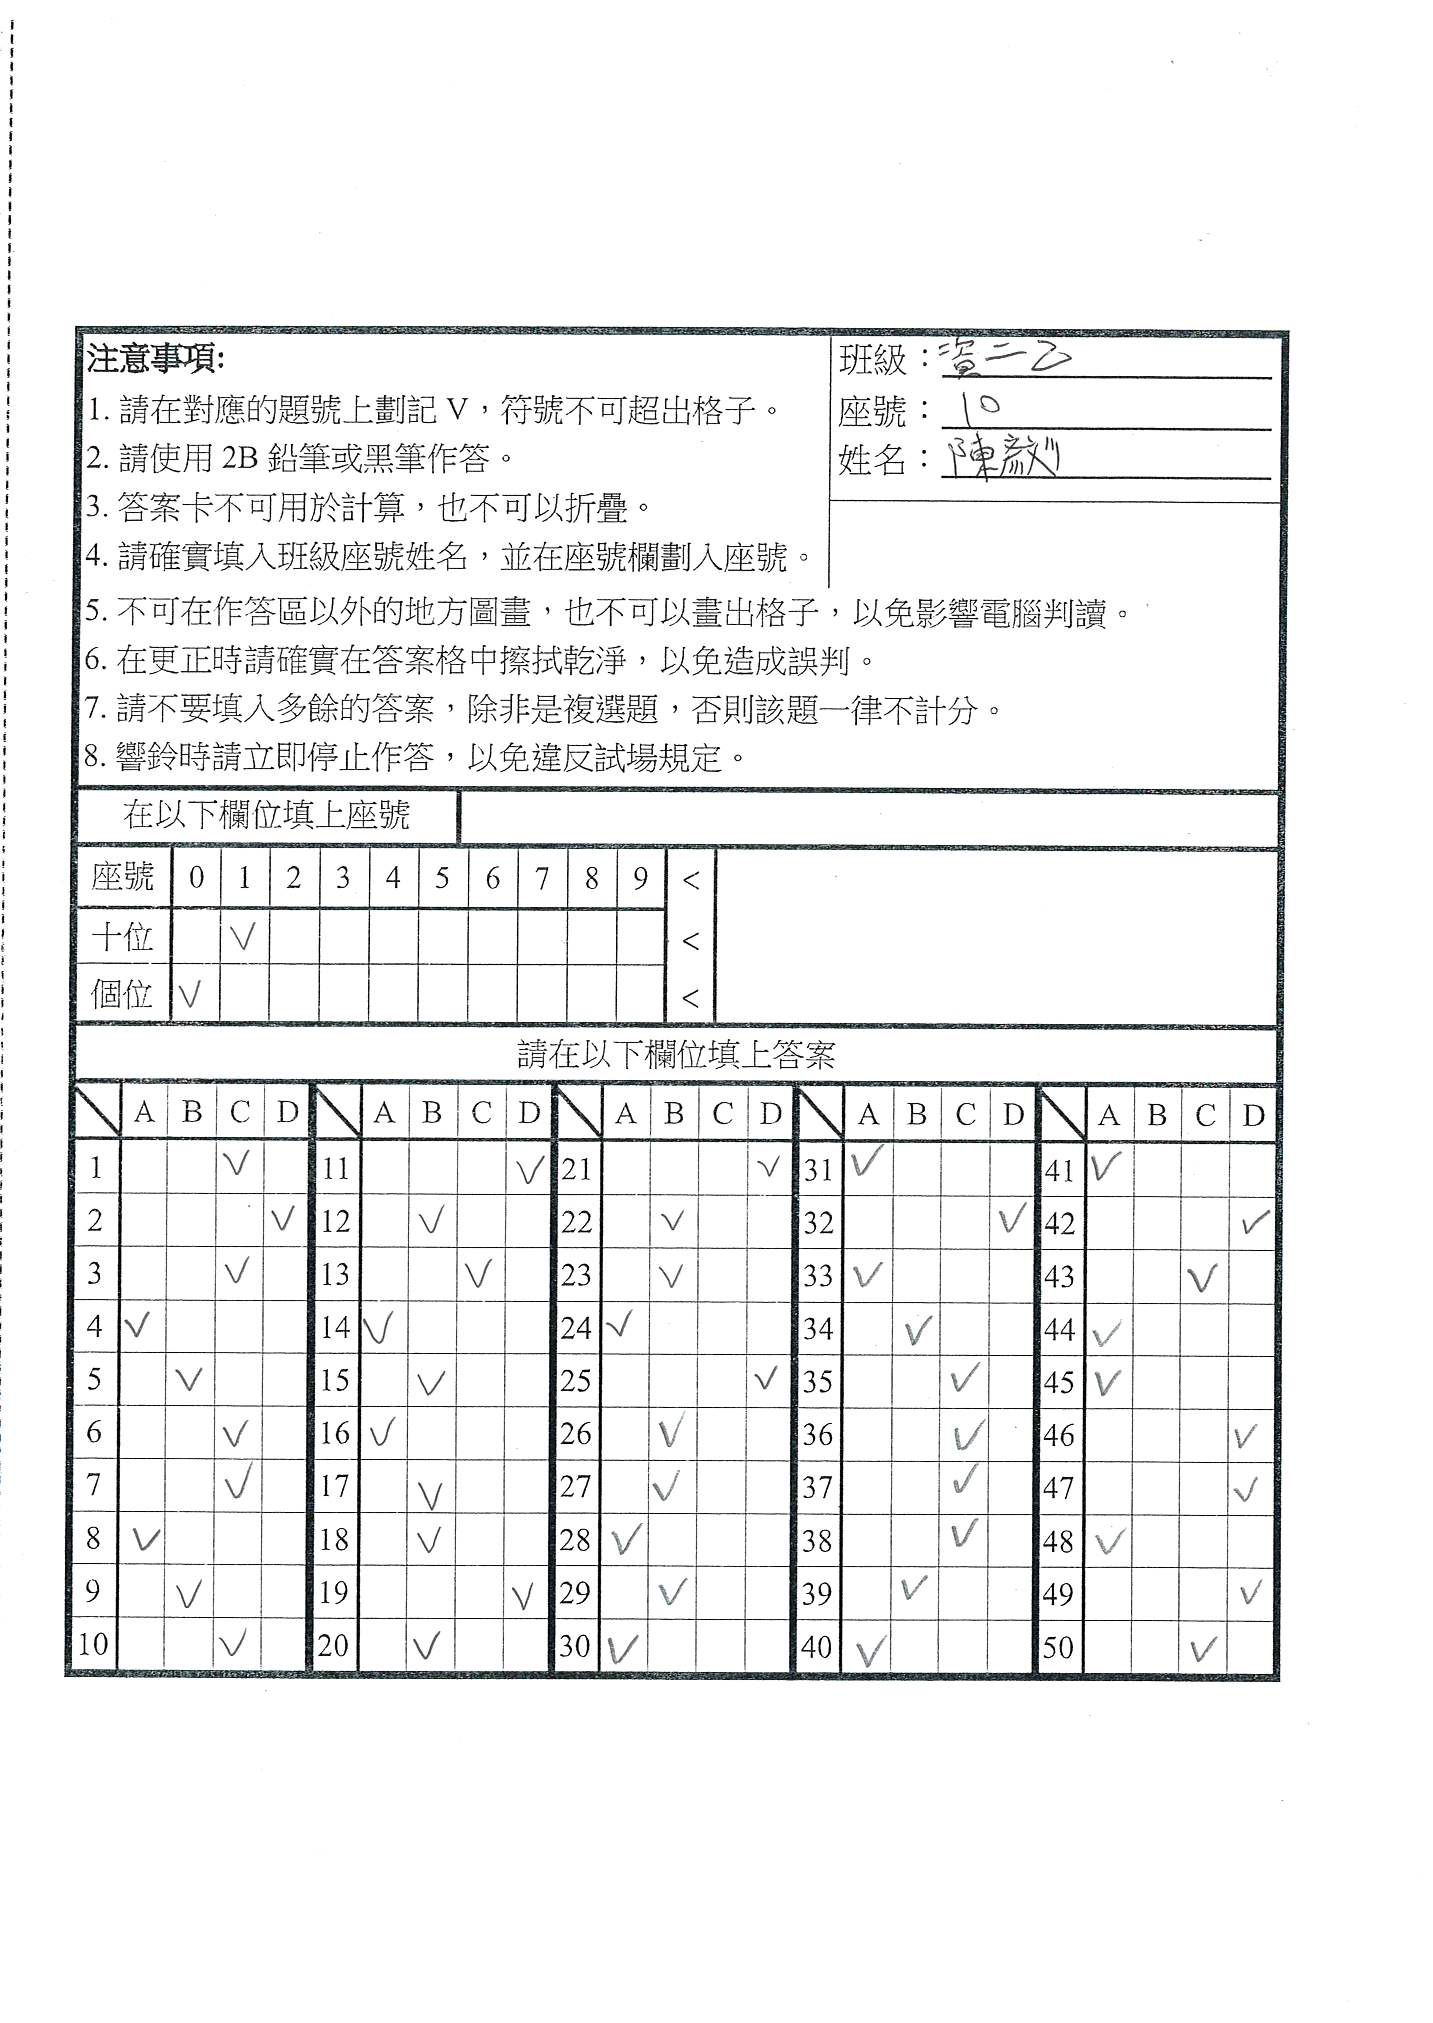 注意事項:
1. 請在對應的題號上劃記 V，符號不可超出格子。
2. 請使用 2B 鉛筆或黑筆作答。
3. 答案卡不可用於計算，也不可以折疊。
4. 請確實填入班級座號姓名，並在座號欄劃入座號。
5. 不可在作答區以外的地方圖畫，也不可以畫出格子，以免影響電腦判讀。
6. 在更正時請確實在答案格中擦拭乾淨，以免造成誤判。
7. 請不要填入多餘的答案，除非是複選題，否則該題一律不計分。
8. 響鈴時請立即停止作答，以免違反試場規定。
班級：資二乙
座號：10
姓名：陳彥
在以下欄位填上座號
座號 0 1 2 3 4 5 6 7 8 9 <
十位 V <
個位 V <
請在以下欄位填上答案
A B C D A B C D A B C D A B C D A B C D
1 V 11 V 21 V 31 V 41 V
2 V 12 V 22 V 32 V 42 V
3 V 13 V 23 V 33 V 43 V
4 V 14 V 24 V 34 V 44 V
5 V 15 V 25 V 35 V 45 V
6 V 16 V 26 V 36 V 46 V
7 V 17 V 27 V 37 V 47 V
8 V 18 V 28 V 38 V 48 V
9 V 19 V 29 V 39 V 49 V
10 V 20 V 30 V 40 V 50 V